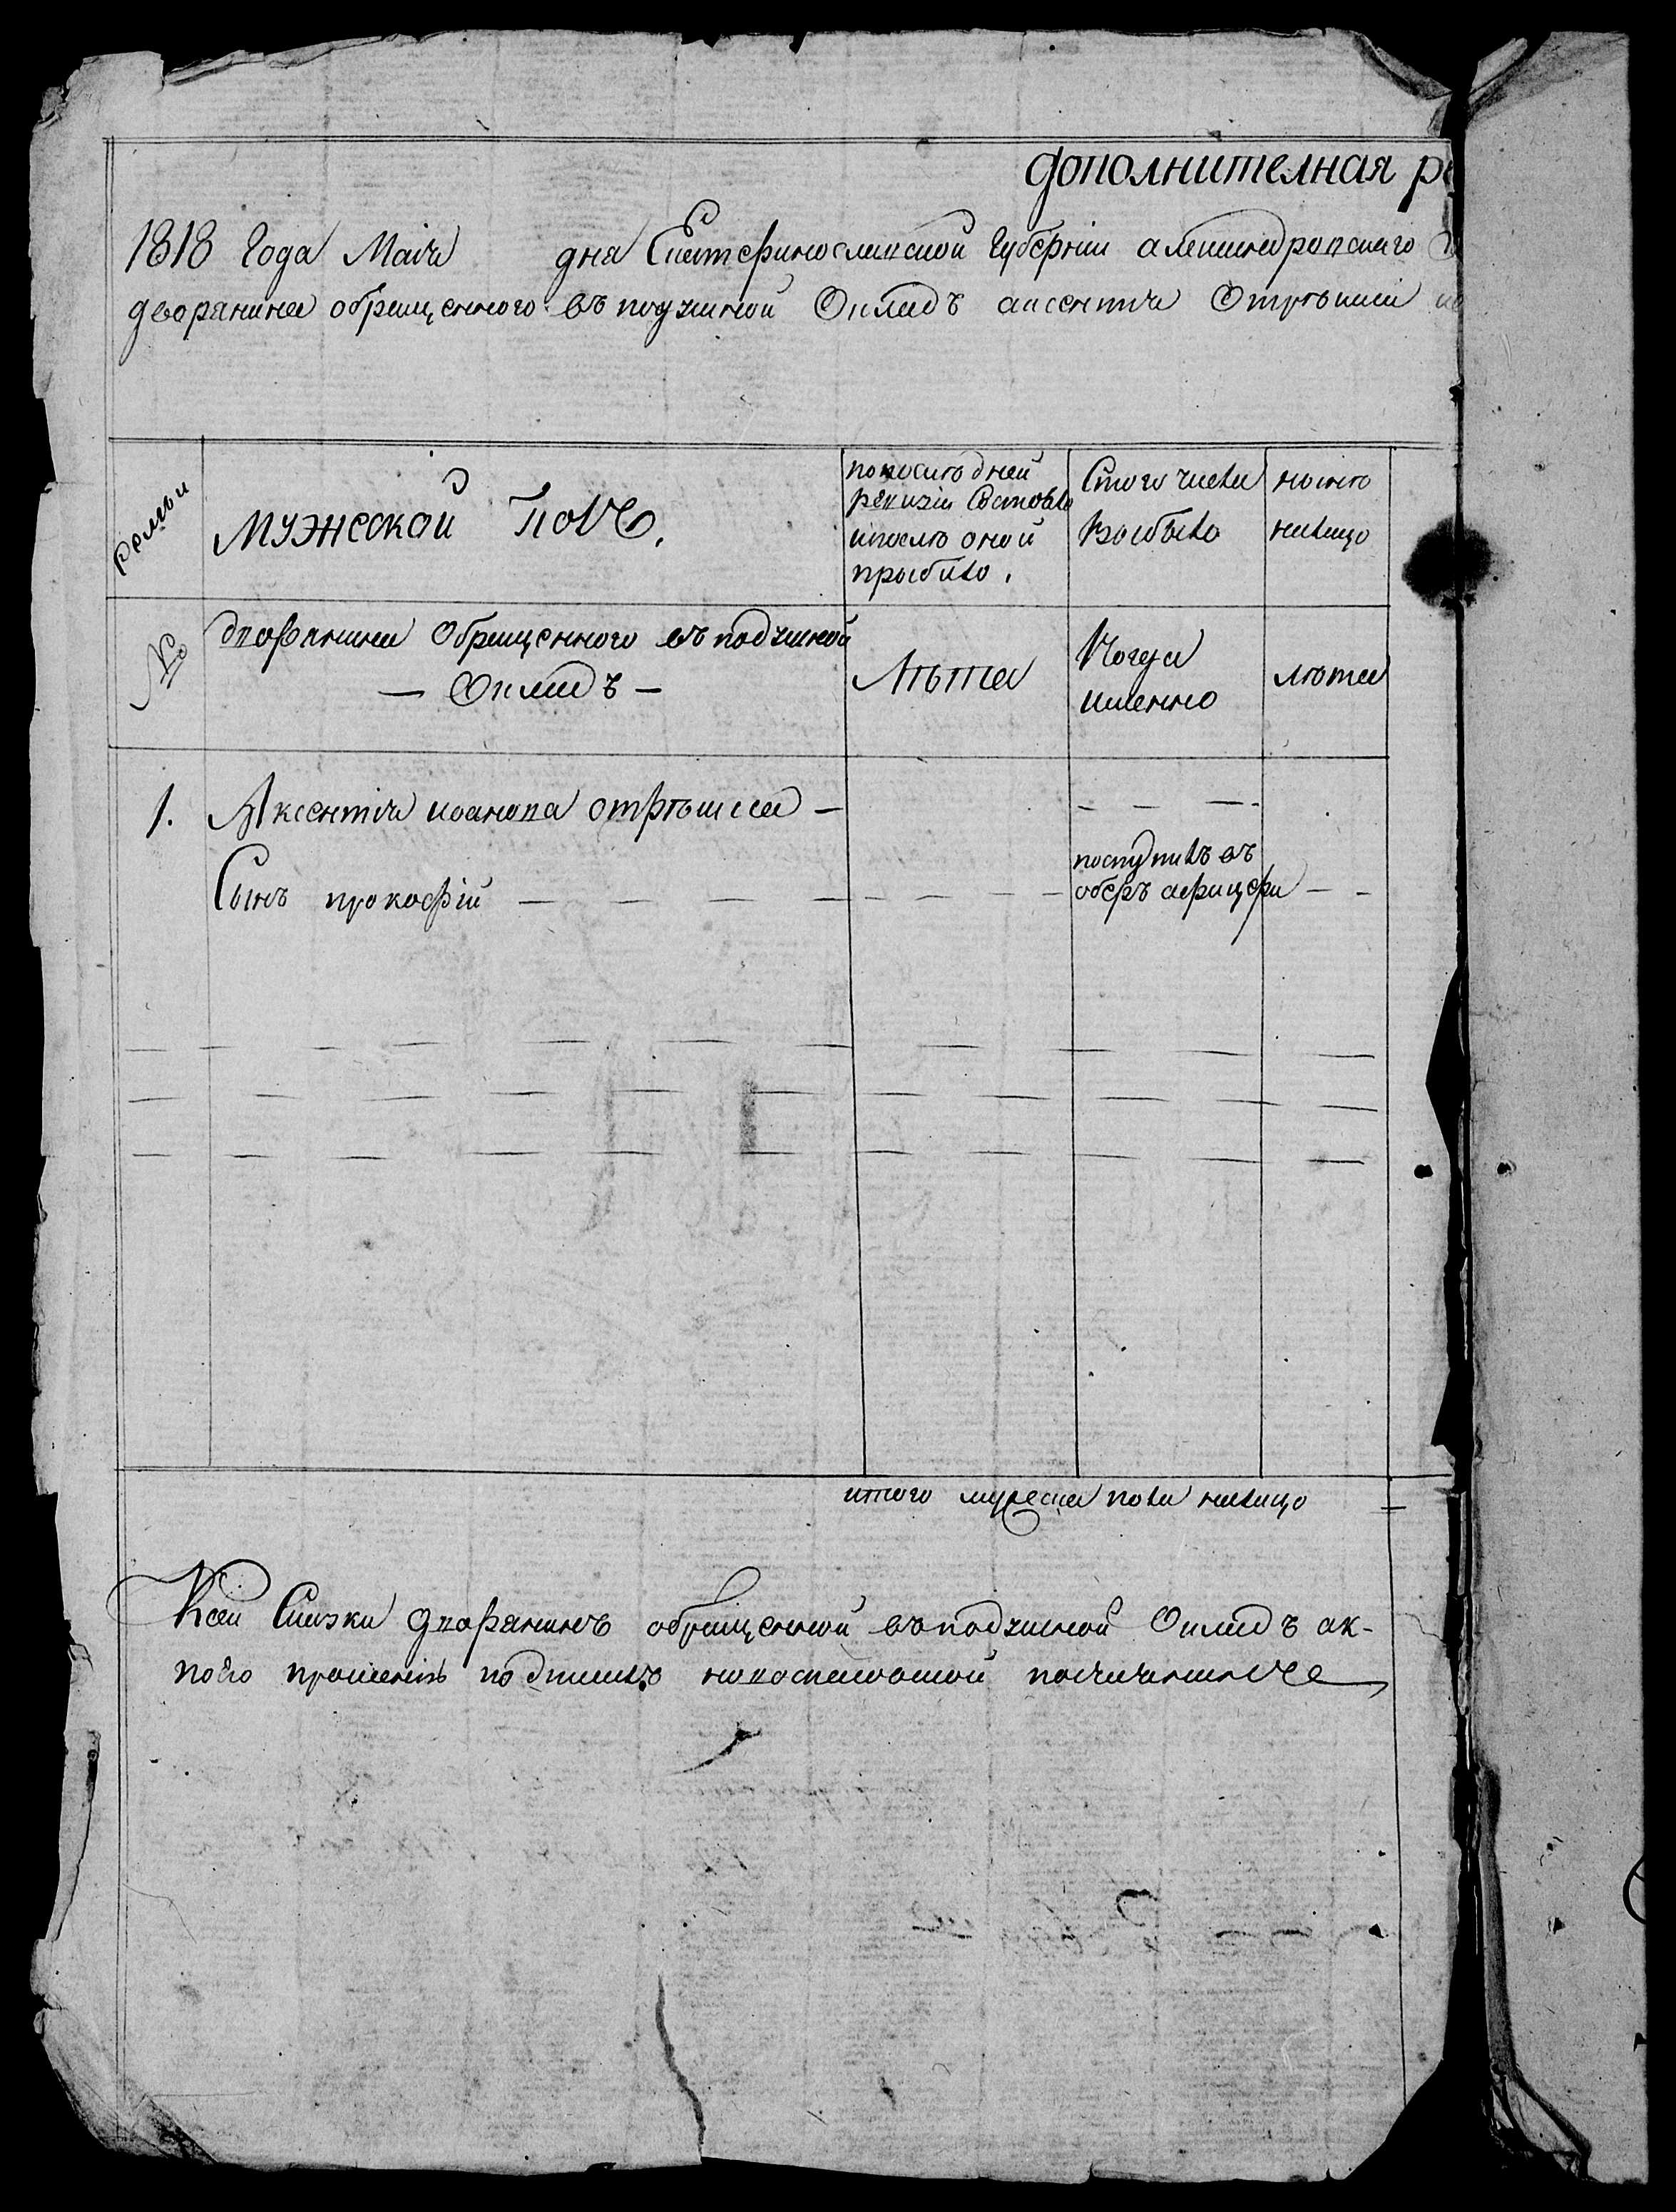 дополнителная ре
1818 Года Маія дня Екатеринославской Губерніи александровскаго
дворянина обращенного въ подушной Окладъ аксентія Отрѣшка
семьи
мужеской полъ.
по последней
ревизіи Состояло
и после оной
прыбило.
Стого числа
Выбыло
ныне
налицо
№
дворянина Обращенного въ подушной
— Окладъ —
Лѣта
Когда
именно
лета
1. Аксентія иоанова отрѣшка —
Сынъ прокофій
поступилъ въ
оберъ афицеры
итого мужеска пола налицо
Ксей Сказки дворянинъ обращенной въ подушной Окладъ ак-
по его прошенію подписалъ